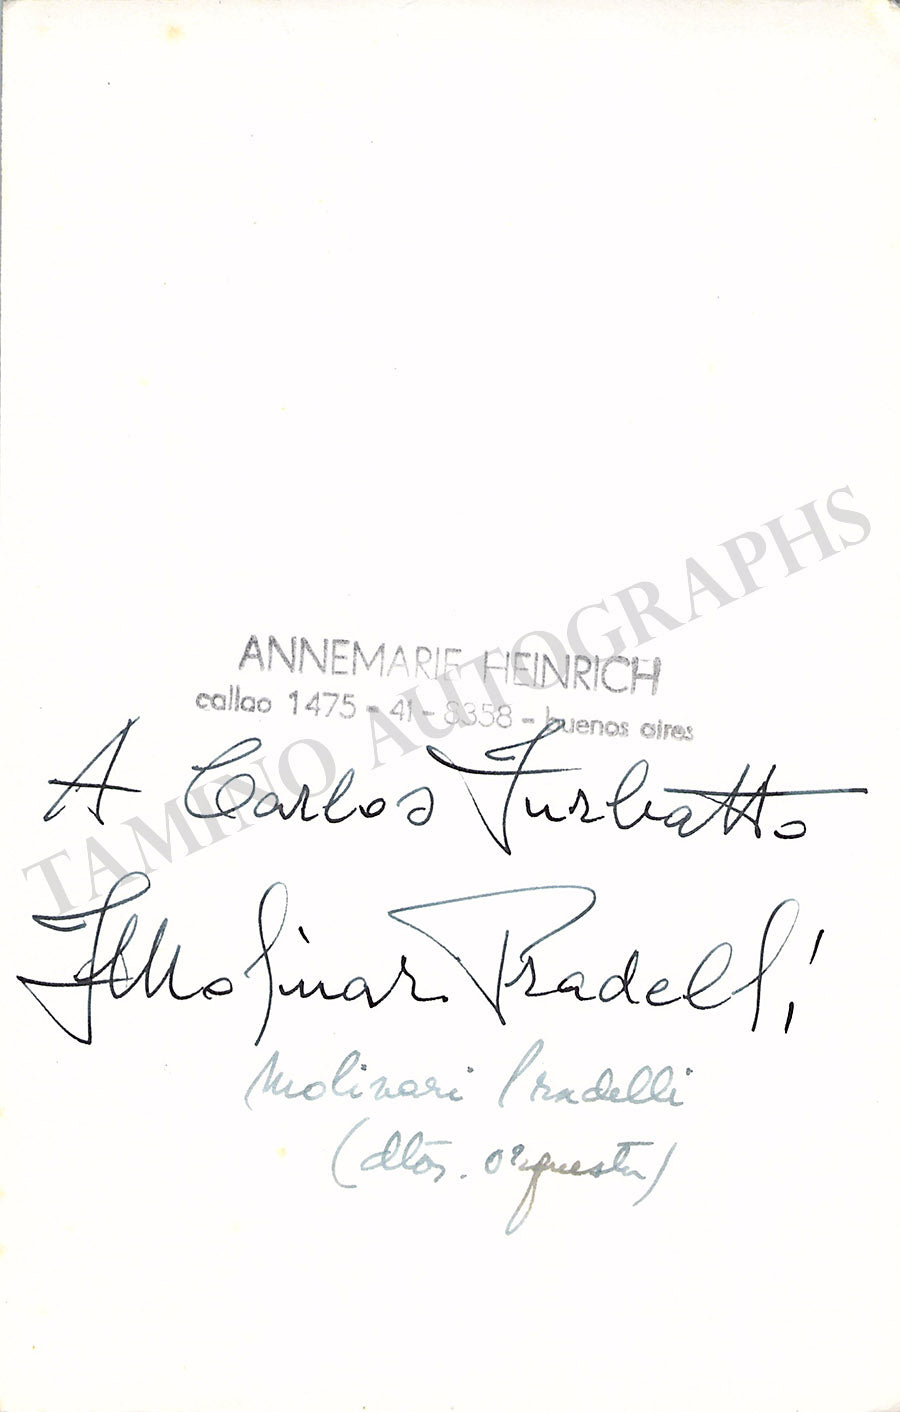 ANNEMARIE HEINRICH
callao 1475 - 41 - 8358 - buenos aires
TAMINO AUTOGRAPHS
A Carlos Furbatto
FMolinar Pradelli
Molinari Pradelli
(dtor. orquesta)